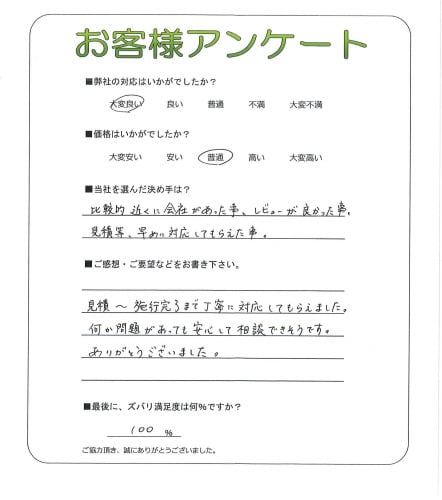 お客様アンケート
■弊社の対応はいかがでしたか？
大変良い 良い 普通 不満 大変不満
■価格はいかがでしたか？
大変安い 安い 普通 高い 大変高い
■当社を選んだ決め手は？
比較的 近くに会社があった事、レビューが良かった事、
見積等、早めに対応してもらえた事。
■ご感想・ご要望などをお書き下さい。
見積〜施行完了まで丁寧に対応してもらえました。
何か問題があっても安心して相談できそうです。
ありがとうございました。
■最後に、ズバリ満足度は何%ですか？
100 %
ご協力頂き、誠にありがとうございました。